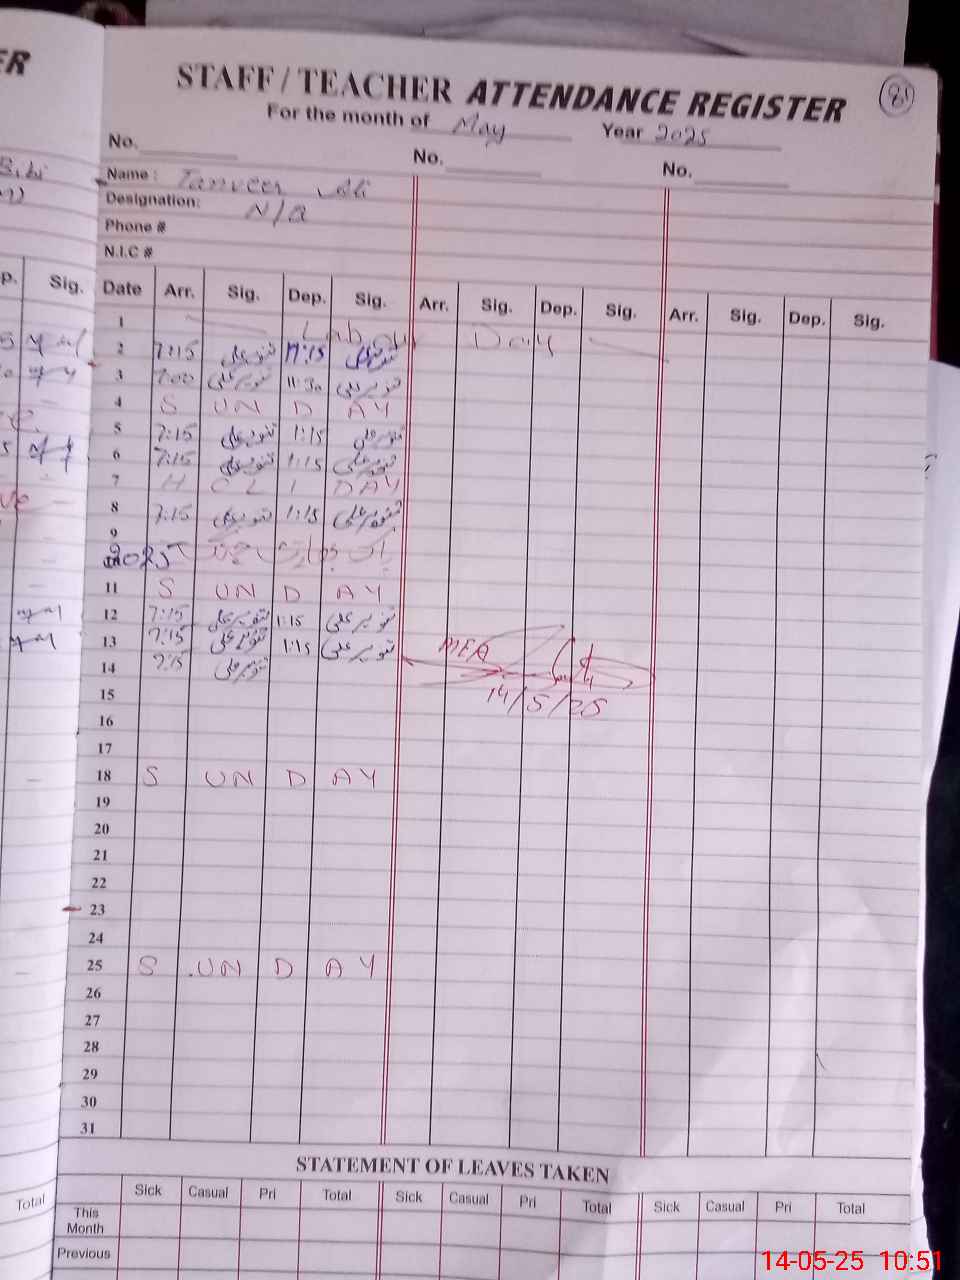 ER
STAFF / TEACHER ATTENDANCE REGISTER
81
For the month of May Year 2025
No. No. No.
Name : Tanveer Ali
Designation: N/a
Phone #
N.I.C #
p. Sig. Date Arr. Sig. Dep. Sig. Arr. Sig. Dep. Sig. Arr. Sig. Dep. Sig.
1 Labour Day
2 7:15 تنویر علی 11:15 تنویر علی
3 7:00 تنویر علی 11:30 تنویر علی
4 S UN D AY
5 7:15 تنویر علی 1:15 تنویر علی
6 7:15 تنویر علی 1:15 تنویر علی
7 H O L I DAY
8 7:15 تنویر علی 1:15 تنویر علی
9
2025
11 S UN D AY
12 7:15 تنویر علی 1:15 تنویر علی
13 7:15 تنویر علی 1:15 تنویر علی MEA
14 7:15 تنویر علی
15 14/5/25
16
17
18 S UN D AY
19
20
21
22
23
24
25 S UN D AY
26
27
28
29
30
31
STATEMENT OF LEAVES TAKEN
Total Sick Casual Pri Total Sick Casual Pri Total Sick Casual Pri Total
This Month
Previous
14-05-25 10:51